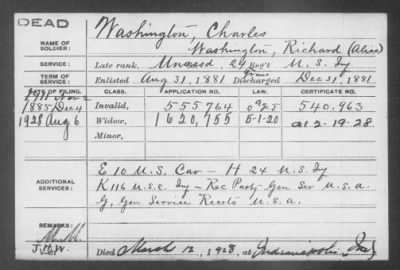 DEAD
NAME OF SOLDIER:
Washington, Charles
Washington, Richard (Alias)
SERVICE:
Late rank, Unassd. 24 Reg't U.S. Inf
TERM OF SERVICE:
Enlisted Aug 31, 1881 Discharged Dec 31, 1881
OF FILING. CLASS. APPLICATION NO. CERTIFICATE NO.
1885 Dec 4 Invalid, 555764 540.963
1928 Aug 6 Widow, 1620,755 5-1-20 a12-19-28
Minor,
ADDITIONAL SERVICES:
E 10 U.S. Cav - H 24 U.S. Inf
K 116 U.S.C. Inf - Rec Party Gen Ser U.S.A.
G, Gen Service Recrts U.S.A.
REMARKS:
J.H.W.
Died March 12, 1928, at Indianapolis, Ind